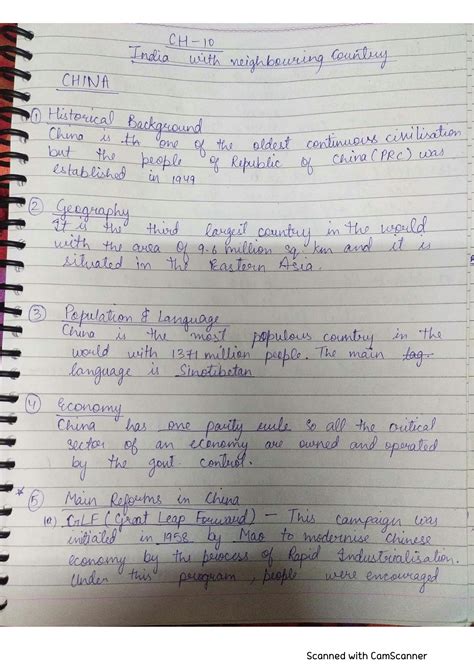 CH-10
India with neighbouring Country
CHINA
① Historical Background
China is th one of the oldest continuous civilisation
but the people of Republic of China (PRC) was
established in 1949
② Geography
It is the third largest country in the world
with the area of 9.6 million sq. km and it is
situated in the Eastern Asia.
③ Population & Language
China is the most populous country in the
world with 1371 million people. The main lag
language is Sinotibetan
④ Economy
China has one party rule so all the critical
sector of an economy are owned and operated
by the govt. control.
* ⑤ Main Reforms in China
(a) GLF (Great Leap Forward) – This campaign was
initiated in 1958 by Mao to modernise Chinese
economy by the process of Rapid Industrialisation.
Under this program, people were encouraged
Scanned with CamScanner